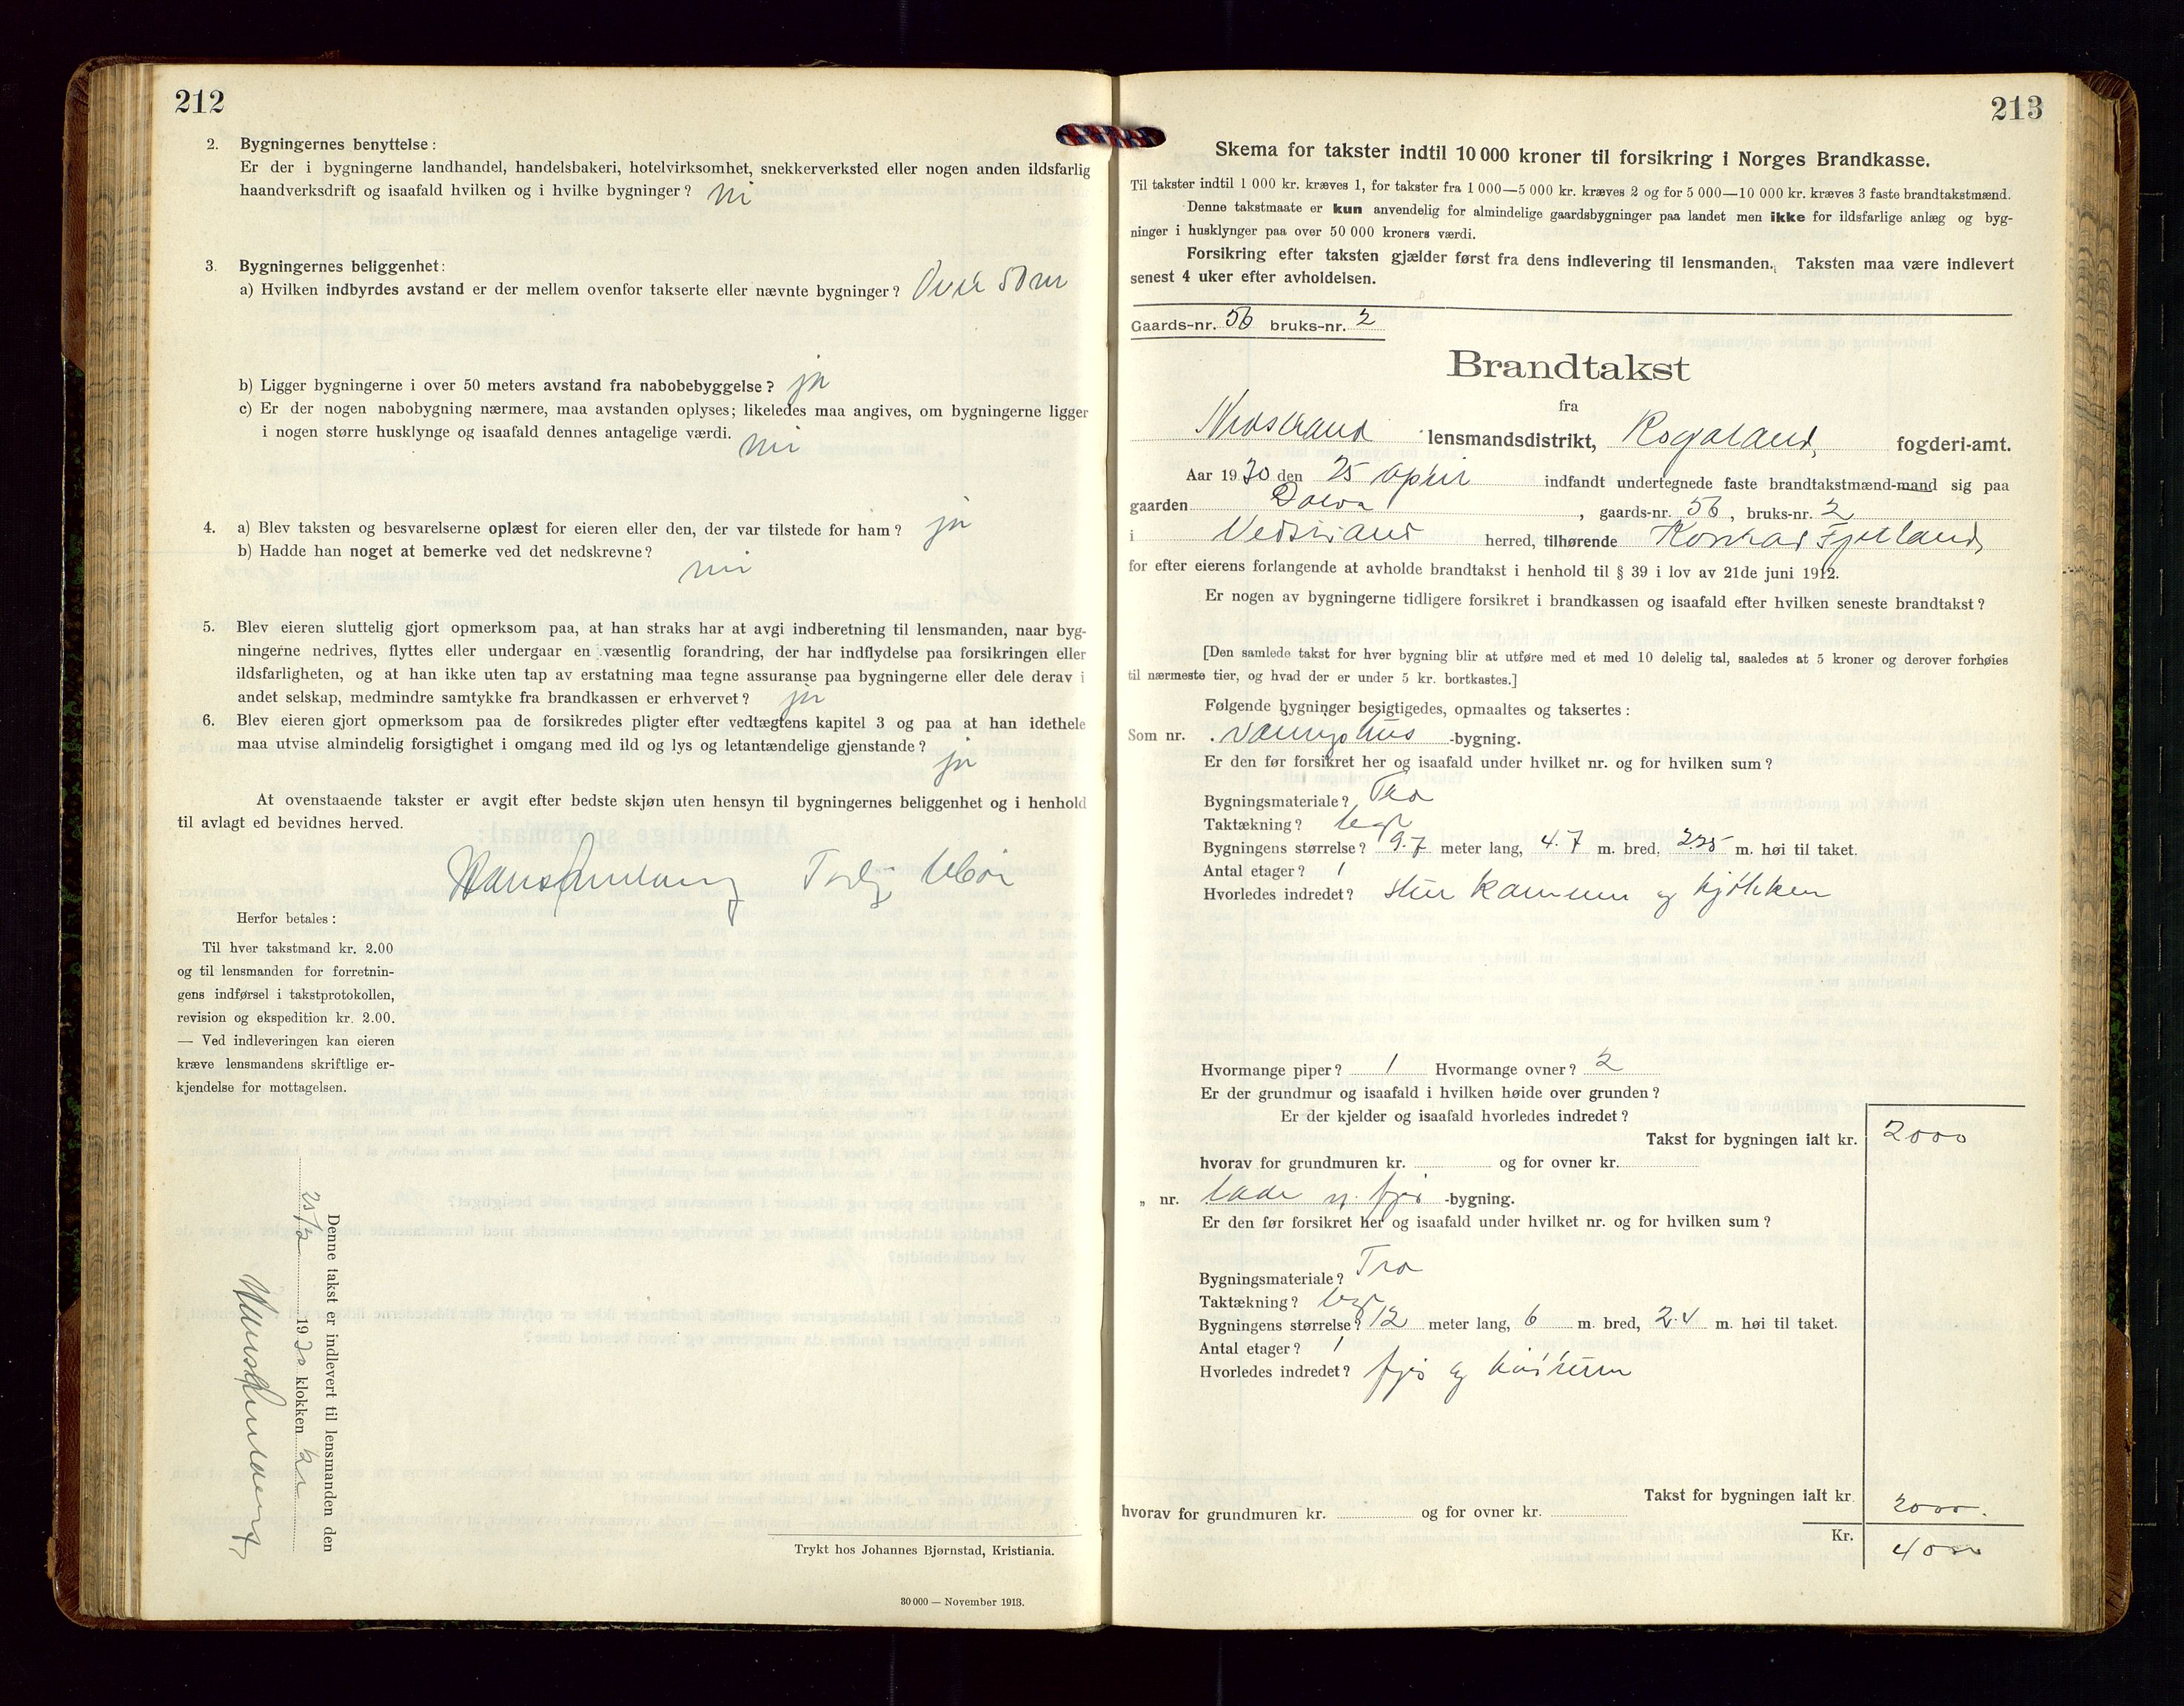 212
2. Bygningernes benyttelse:
Er der i bygningerne landhandel, handelsbakeri, hotelvirksomhet, snekkerverksted eller nogen anden ildsfarlig
haandverksdrift og isaafald hvilken og i hvilke bygninger? nei
3. Bygningernes beliggenhet:
a) Hvilken indbyrdes avstand er der mellem ovenfor takserte eller nævnte bygninger? Over 50 m
b) Ligger bygningerne i over 50 meters avstand fra nabobebyggelse? ja
c) Er der nogen nabobygning nærmere, maa avstanden oplyses; likeledes maa angives, om bygningerne ligger
i nogen større husklynge og isaafald dennes antagelige værdi. nei
4. a) Blev taksten og besvarelserne oplæst for eieren eller den, der var tilstede for ham? ja
b) Hadde han noget at bemerke ved det nedskrevne?
nei
5. Blev eieren sluttelig gjort opmerksom paa, at han straks har at avgi indberetning til lensmanden, naar byg-
ningerne nedrives, flyttes eller undergaar en væsentlig forandring, der har indflydelse paa forsikringen eller
ildsfarligheten, og at han ikke uten tap av erstatning maa tegne assuranse paa bygningerne eller dele derav i
andet selskap, medmindre samtykke fra brandkassen er erhvervet? ja
6. Blev eieren gjort opmerksom paa de forsikredes pligter efter vedtægtens kapitel 3 og paa at han idethele
maa utvise almindelig forsigtighet i omgang med ild og lys og letantændelige gjenstande?
ja
At ovenstaaende takster er avgit efter bedste skjøn uten hensyn til bygningernes beliggenhet og i henhold
til avlagt ed bevidnes herved.
Herfor betales:
Til hver takstmand kr. 2.00
og til lensmanden for forretnin-
gens indførsel i takstprotokollen,
revision og ekspedition kr. 2.00.
— Ved indleveringen kan eieren
kræve lensmandens skriftlige er-
kjendelse for mottagelsen.
Denne takst er indlevert til lensmanden den
1930 klokken
Trykt hos Johannes Bjørnstad, Kristiania.
30 000 — November 1913.
213
Skema for takster indtil 10 000 kroner til forsikring i Norges Brandkasse.
Til takster indtil 1 000 kr. kræves 1, for takster fra 1 000—5 000 kr. kræves 2 og for 5 000—10 000 kr. kræves 3 faste brandtakstmænd.
Denne takstmaate er kun anvendelig for almindelige gaardsbygninger paa landet men ikke for ildsfarlige anlæg og byg-
ninger i husklynger paa over 50 000 kroners værdi.
Forsikring efter taksten gjælder først fra dens indlevering til lensmanden. Taksten maa være indlevert
senest 4 uker efter avholdelsen.
Gaards-nr. 56 bruks-nr. 2
Brandtakst
fra
Nedstrand lensmandsdistrikt, Rogaland, fogderi-amt.
Aar 1930 den 25 april indfandt undertegnede faste brandtakstmænd-mand sig paa
gaarden Dalva, gaards-nr. 56, bruks-nr. 2
i Nedstrand herred, tilhørende Konrad Fjelland
for efter eierens forlangende at avholde brandtakst i henhold til § 39 i lov av 21de juni 1912.
Er nogen av bygningerne tidligere forsikret i brandkassen og isaafald efter hvilken seneste brandtakst?
[Den samlede takst for hver bygning blir at utføre med et med 10 delelig tal, saaledes at 5 kroner og derover forhøies
til nærmeste tier, og hvad der er under 5 kr. bortkastes.]
Følgende bygninger besigtigedes, opmaaltes og taksertes:
Som nr. Vaaningshus -bygning.
Er den før forsikret her og isaafald under hvilket nr. og for hvilken sum?
Bygningsmateriale? Træ
Taktækning?
Bygningens størrelse? 9.7 meter lang, 4.7 m. bred, 2.25 m. høi til taket.
Antal etager? 1
Hvorledes indredet? stue kammer og kjøkken
Hvormange piper? 1 Hvormange ovner? 2
Er der grundmur og isaafald i hvilken høide over grunden?
Er der kjelder og isaafald hvorledes indredet?
Takst for bygningen ialt kr. 2000
hvorav for grundmuren kr. og for ovner kr.
„ nr. lade og fjøs -bygning.
Er den før forsikret her og isaafald under hvilket nr. og for hvilken sum?
Bygningsmateriale? Træ
Taktækning?
Bygningens størrelse? 12 meter lang, 6 m. bred, 2.4 m. høi til taket.
Antal etager? 1
Hvorledes indredet? fjøs og
Takst for bygningen ialt kr. 2000.
hvorav for grundmuren kr. og for ovner kr.
Kr. 4000